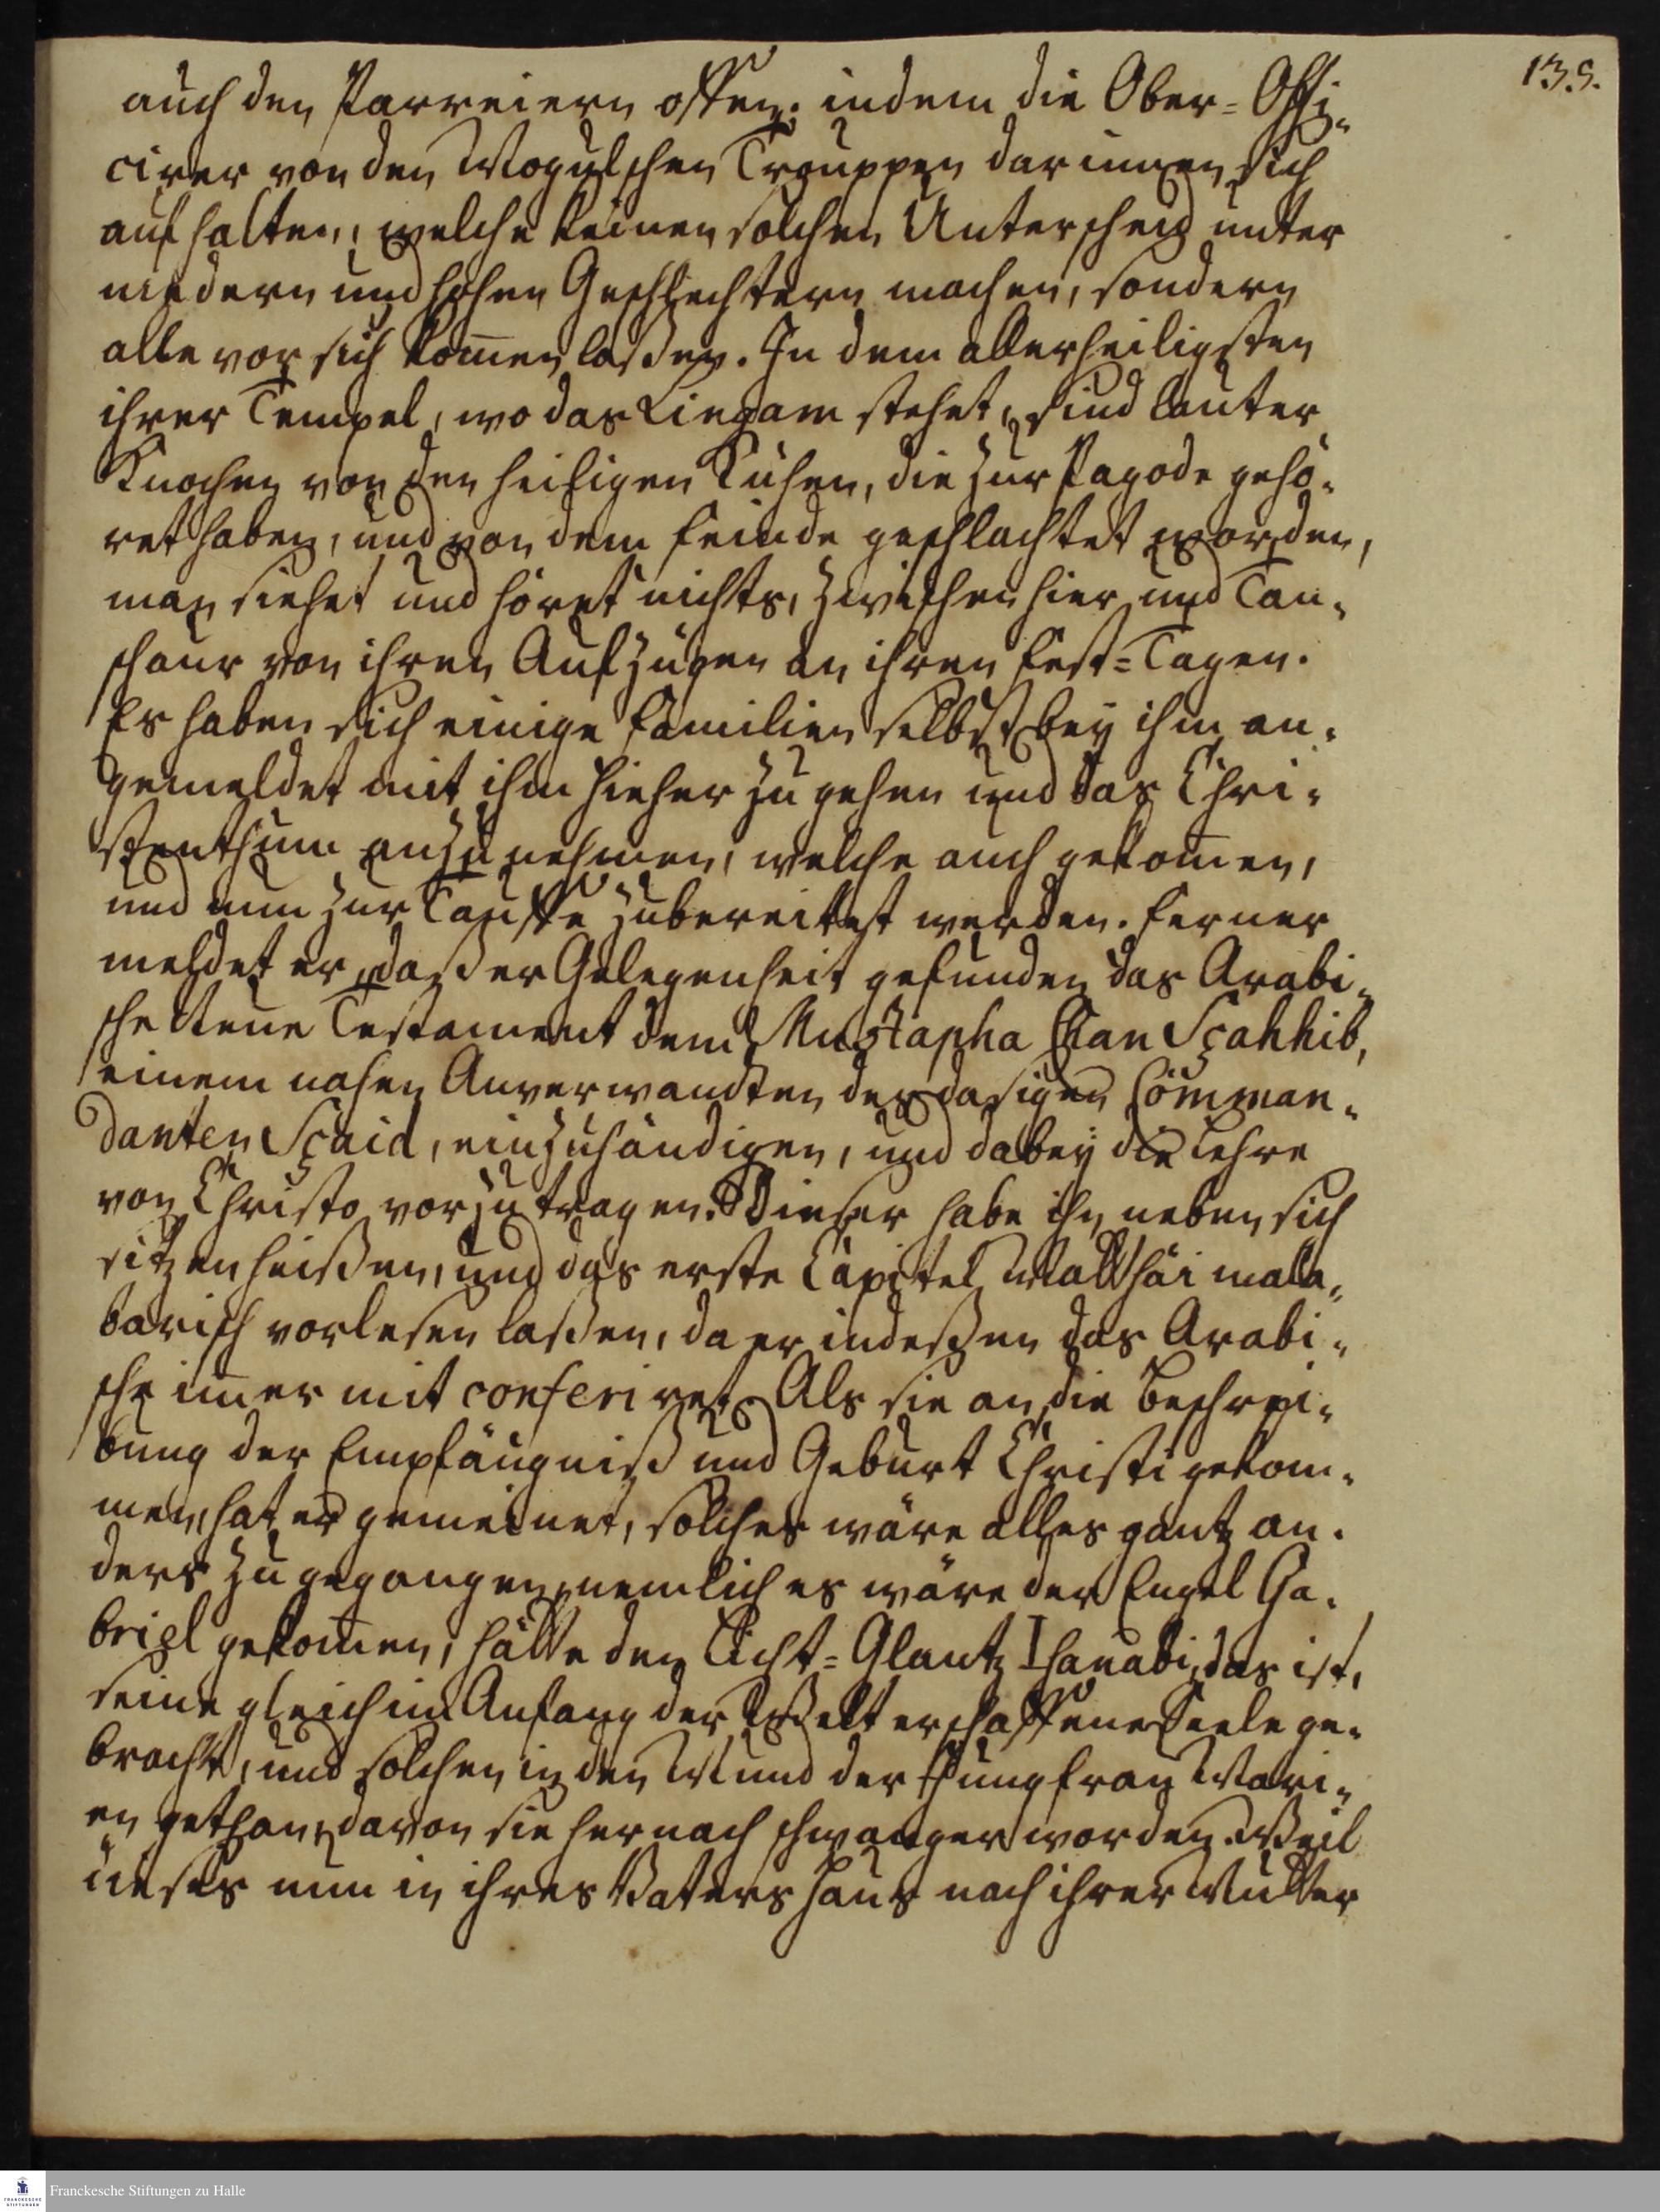 135.
auch den Parreiern offen: indem die Ober-Offi-
cirer von den Mogulschen Trouppen darinnen sich
aufhalten, welche keinen solchen Unterscheid unter
niedern und hohen Geschlechtern machen, sondern
alle vor sich kom̅en laßen. In dem allerheiligsten
ihrer Tempel, wo das Lingam stehet, sind lauter
Knochen von den heiligen Kühen, die zur Pagode gehö-
ret haben, und von dem Feinde geschlachtet worden,
man siehet und höret nichts, zwischen hier und Tan-
schaur von ihren Aufzügen an ihren Fest-Tagen.
Es haben sich einige Familien selbst bey ihm an-
gemeldet mit ihm hieher zu gehen und das Chri-
stenthum anzunehmen, welche auch gekom̅en,
und nun zur Tauffe zubereitet werden. Ferner
meldet er, daß er Gelegenheit gefunden das Arabi-
sche Neue Testament dem Mustapha Chan Sçahhib,
einem nahen Anverwandten des dasigen Comman-
danten Sçaid, einzuhändigen, und dabey die Lehre
von Christo vorzutragen. Dieser habe ihn neben sich
sitzen heißen, und das erste Capitel Matthäi mala-
barisch vorlesen laßen, da er indeßen das Arabi-
sche im̅er mit conferiret. Als sie an die Beschrei-
bung der Empfängniß und Geburt Christi gekom-
men, hat er gemeinet, solches wäre alles gantz an-
ders zugegangen, nemlich es wäre der Engel Ga-
briel gekom̅en, hätte den Licht-Glantz Isanabi, das ist,
seine gleich im Anfang der Welt erschaffene Seele ge-
bracht, und solchen in den Mund der Jungfrau Mari-
en gethan, davon sie hernach schwanger worden. Weil
dieses nun in ihres Vaters Haus nach ihrer Mutter
Franckesche Stiftungen zu Halle